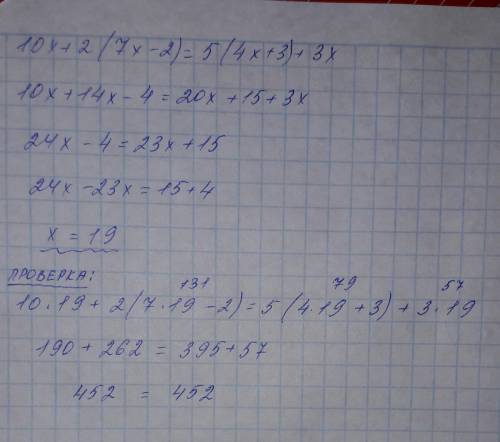 10x+2(7x-2)=5(4x+3)+3x
10x+14x-4=20x+15+3x
24x-4=23x+15
24x-23x=15+4
x=19
ПРОВЕРКА:
131 79 57
10·19+2(7·19-2)=5(4·19+3)+3·19
190+262=395+57
452=452